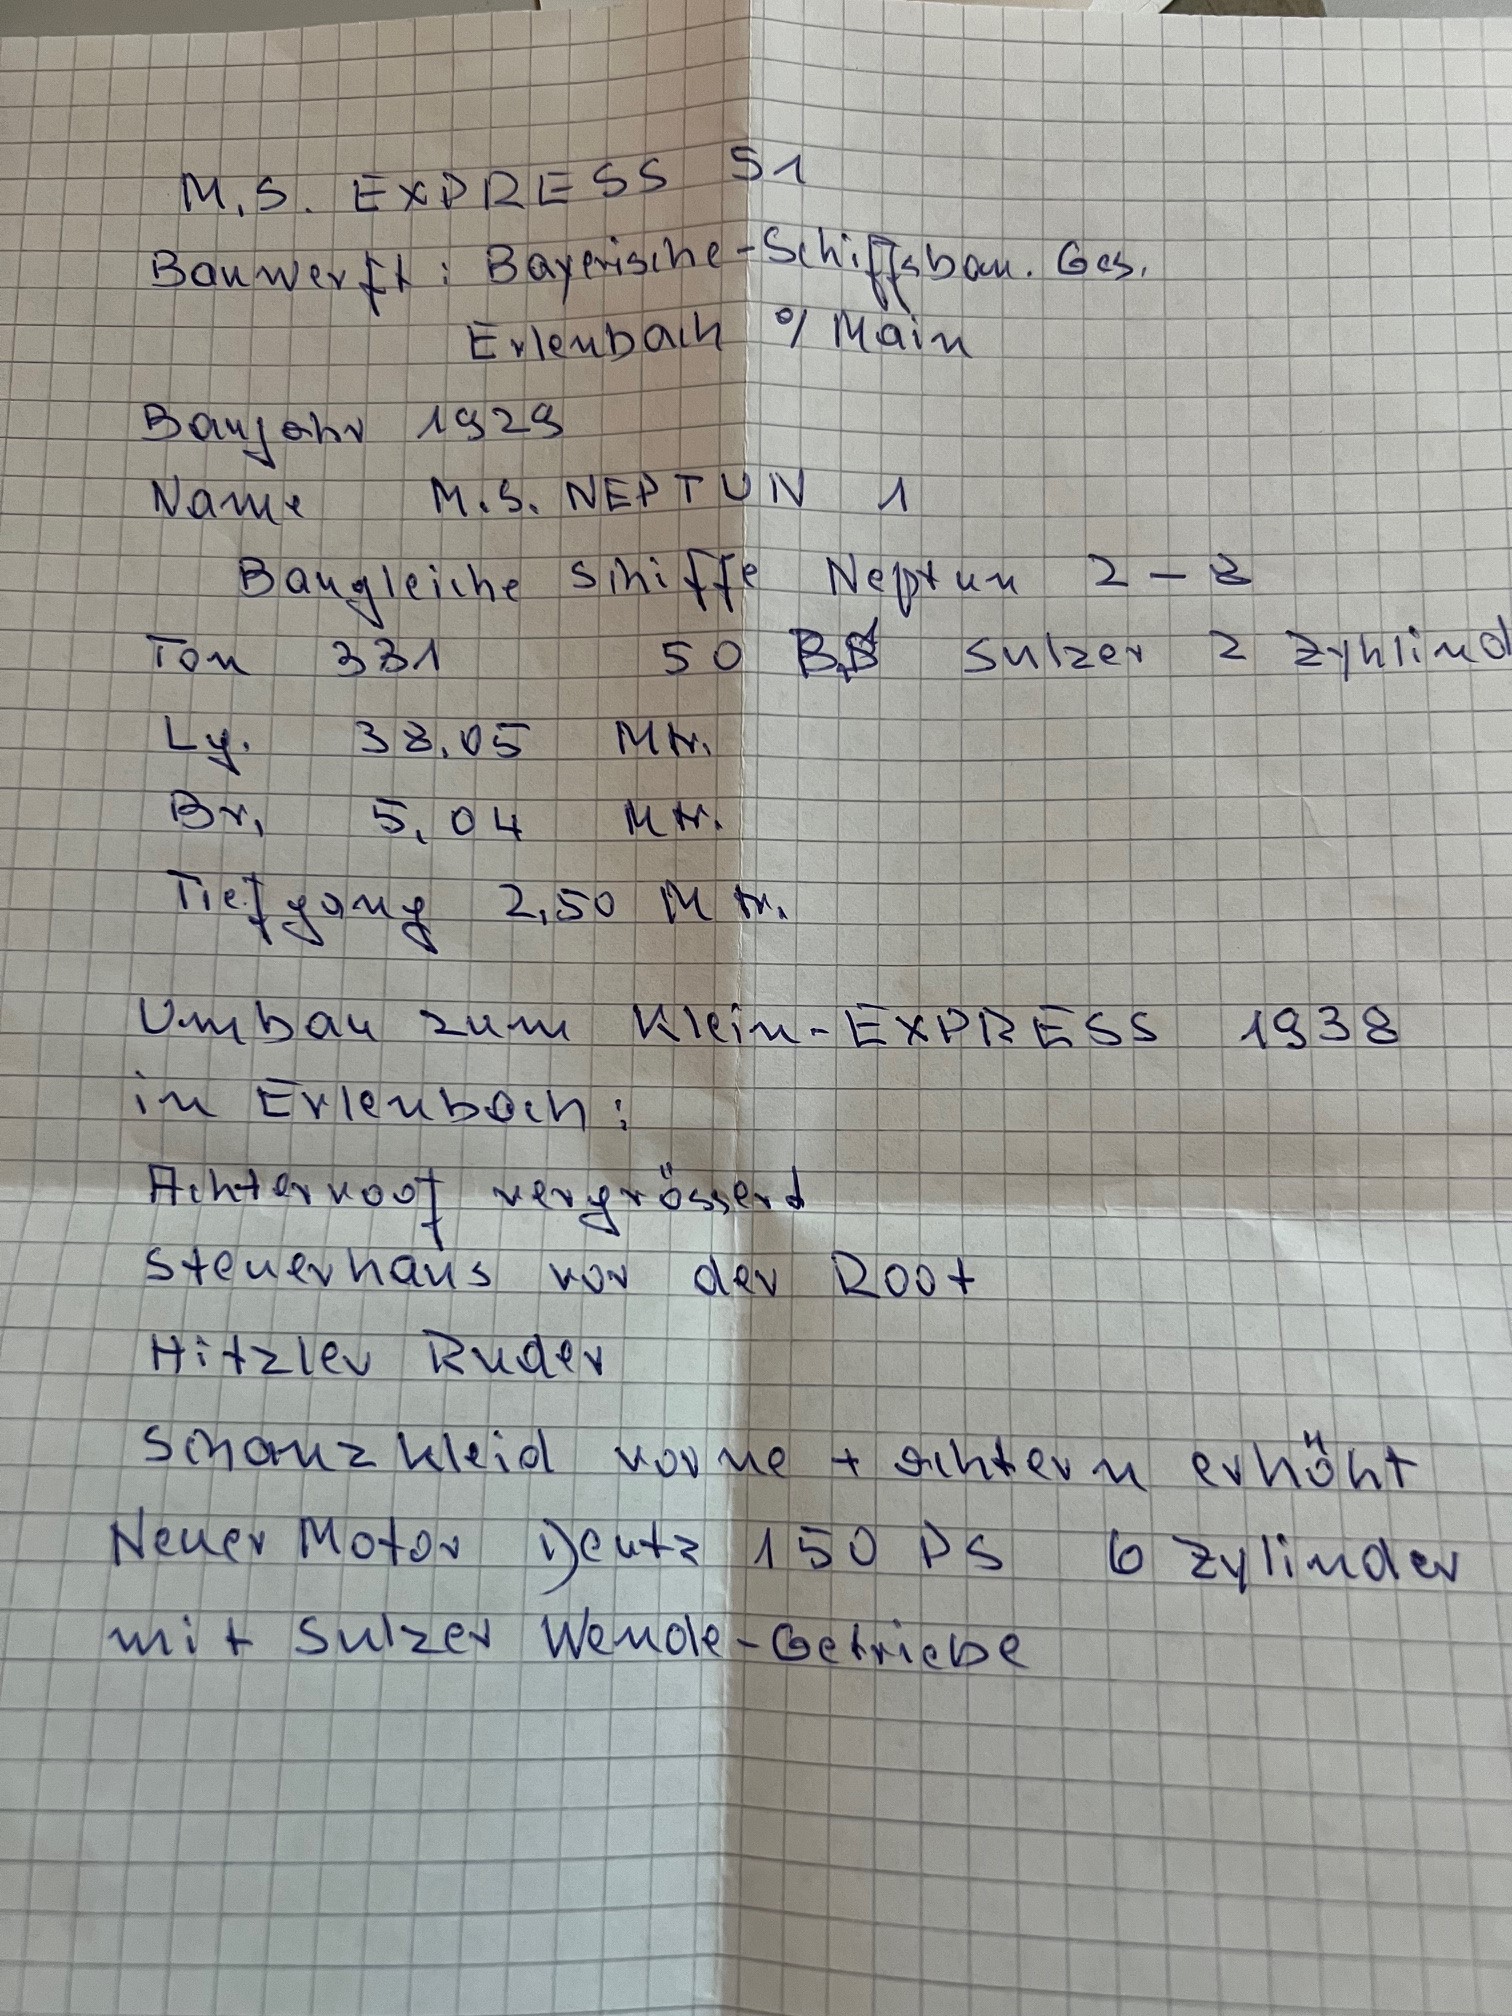 M.S. EXPRESS 51
Bauwerft: Bayerische-Schiffsbau. Ges.
Erlenbach a/Main
Baujahr 1929
Name M.S. NEPTUN 1
Baugleiche Schiffe Neptun 2 - 8
Ton 331 50 Sulzer 2 Zyklind
Lg. 38.05 Mtr.
Br. 5,04 Mtr.
Tiefgang 2,50 Mtr.
Umbau zum Klein-EXPRESS 1938
in Erlenbach:
Achterroof vergrösserd
Steuerhaus vor der Roof
Hitzler Ruder
Schanzkleid vorne + achtern erhöht
Neuer Motor Deutz 150 PS 6 Zylinder
mit Sulzer Wende-Getriebe